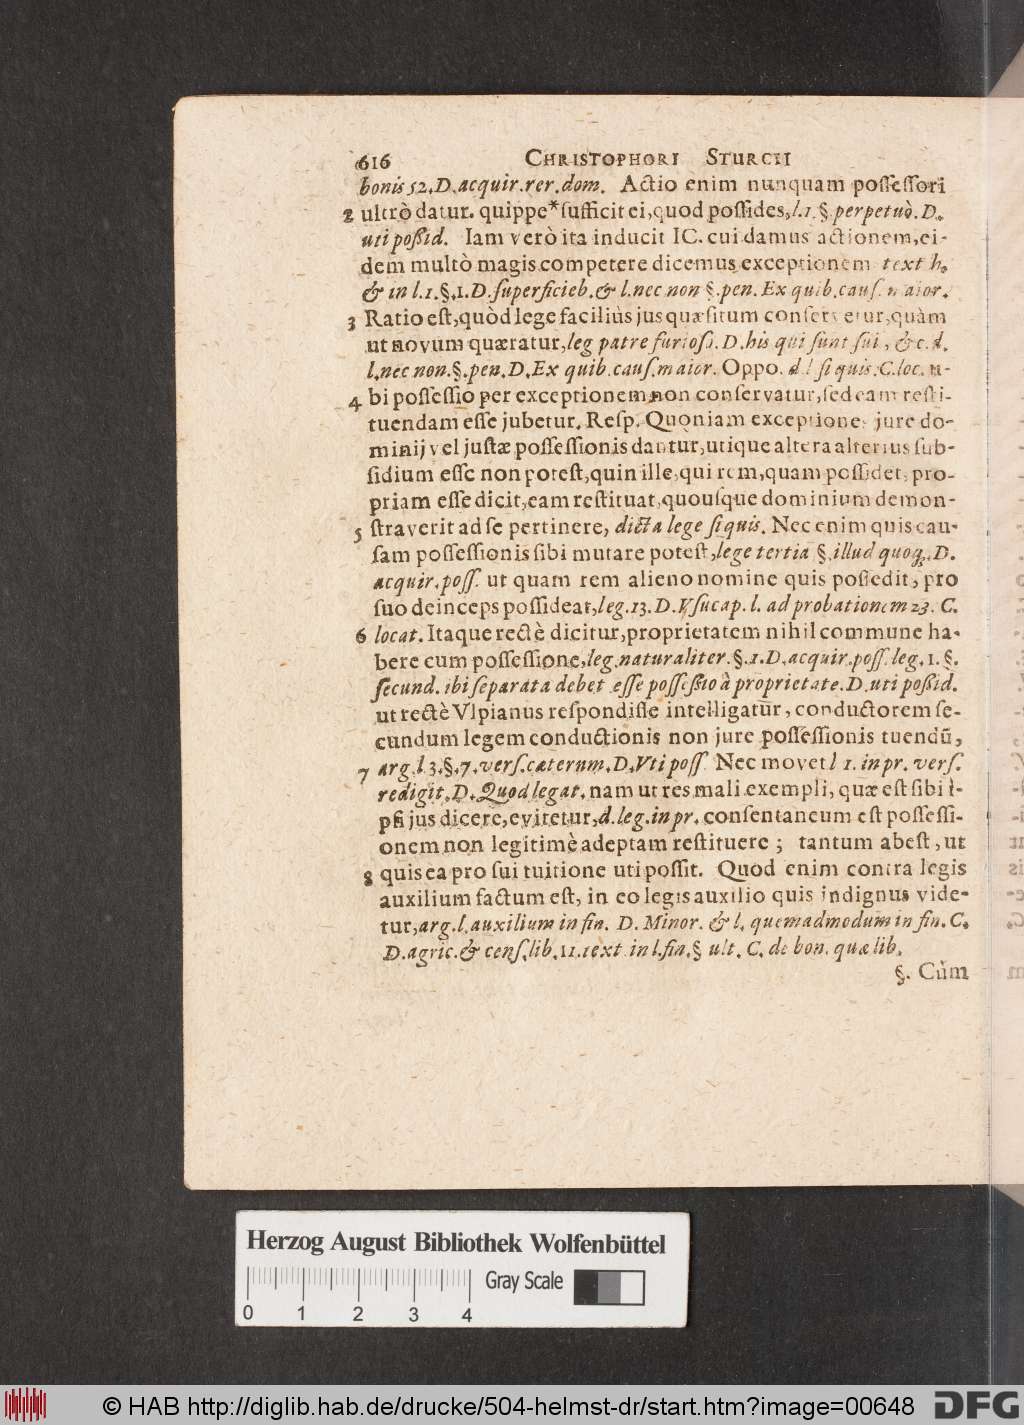 616 CHRISTOPHORI STURCII
bonis 52. D. acquir. rer. dom. Actio enim nunquam possessori
2 ultrò datur. quippe* sufficit ei, quod possides, l. 1. §. perpetuò. D.
uti poßid. Iam verò ita inducit IC. cui damus actionem, ei-
dem multò magis competere dicemus exceptionem text h.
& in l. 1. §. 1. D. superficieb. & l. nec non §. pen. Ex quib. caus. maior.
3 Ratio est, quòd lege faciliùs jus quæsitum conservetur, quàm
ut novum quæratur, leg patre furioso. D. his qui sunt sui, &c. d.
l. nec non. §. pen. D. Ex quib. caus. maior. Oppo. d. l si quis. C. loc. u-
bi possessio per exceptionem non conservatur, sed eam resti-
4 tuendam esse jubetur. Resp. Quoniam exceptiones jure do-
minij vel justæ possessionis dantur, utique altera alterius sub-
sidium esse non potest, quin ille, qui rem, quam possidet, pro-
priam esse dicit, eam restituat, quousque dominium demon-
5 straverit ad se pertinere, dicta lege si quis. Nec enim quis cau-
sam possessionis sibi mutare potest, lege tertia §. illud quoq;. D.
acquir. poss. ut quam rem alieno nomine quis possedit, pro
suo deinceps possideat, leg. 13. D. Vsucap. l. ad probationem 23. C.
6 locat. Itaque rectè dicitur, proprietatem nihil commune ha-
bere cum possessione, leg. naturaliter. §. 1. D. acquir. poss. leg. 1. §.
secund. ibi separata debet esse possessio à proprietate. D. uti poßid.
ut rectè Vlpianus respondisse intelligatur, conductorem se-
cundum legem conductionis non jure possessionis tuendũ,
7 arg. l 3. §. 7. vers. cæterum. D. Vti poss. Nec movet l 1. in pr. vers.
redigit. D. Quod legat. nam ut res mali exempli, quæ est sibi i-
psi jus dicere, evitetur, d. leg. in pr. consentaneum est possessi-
onem non legitimè adeptam restituere; tantum abest, ut
8 quis ea pro sui tuitione uti possit. Quod enim contra legis
auxilium factum est, in eo legis auxilio quis indignus vide-
tur, arg. l. auxilium in fin. D. Minor. & l. quemadmodum in fin. C.
D. agric. & cens. lib. 11. text in l. fin. § ult. C. de bon. quæ lib.
§. Cùm
Herzog August Bibliothek Wolfenbüttel
Gray Scale
0 1 2 3 4
© HAB http://diglib.hab.de/drucke/504-helmst-dr/start.htm?image=00648
DFG